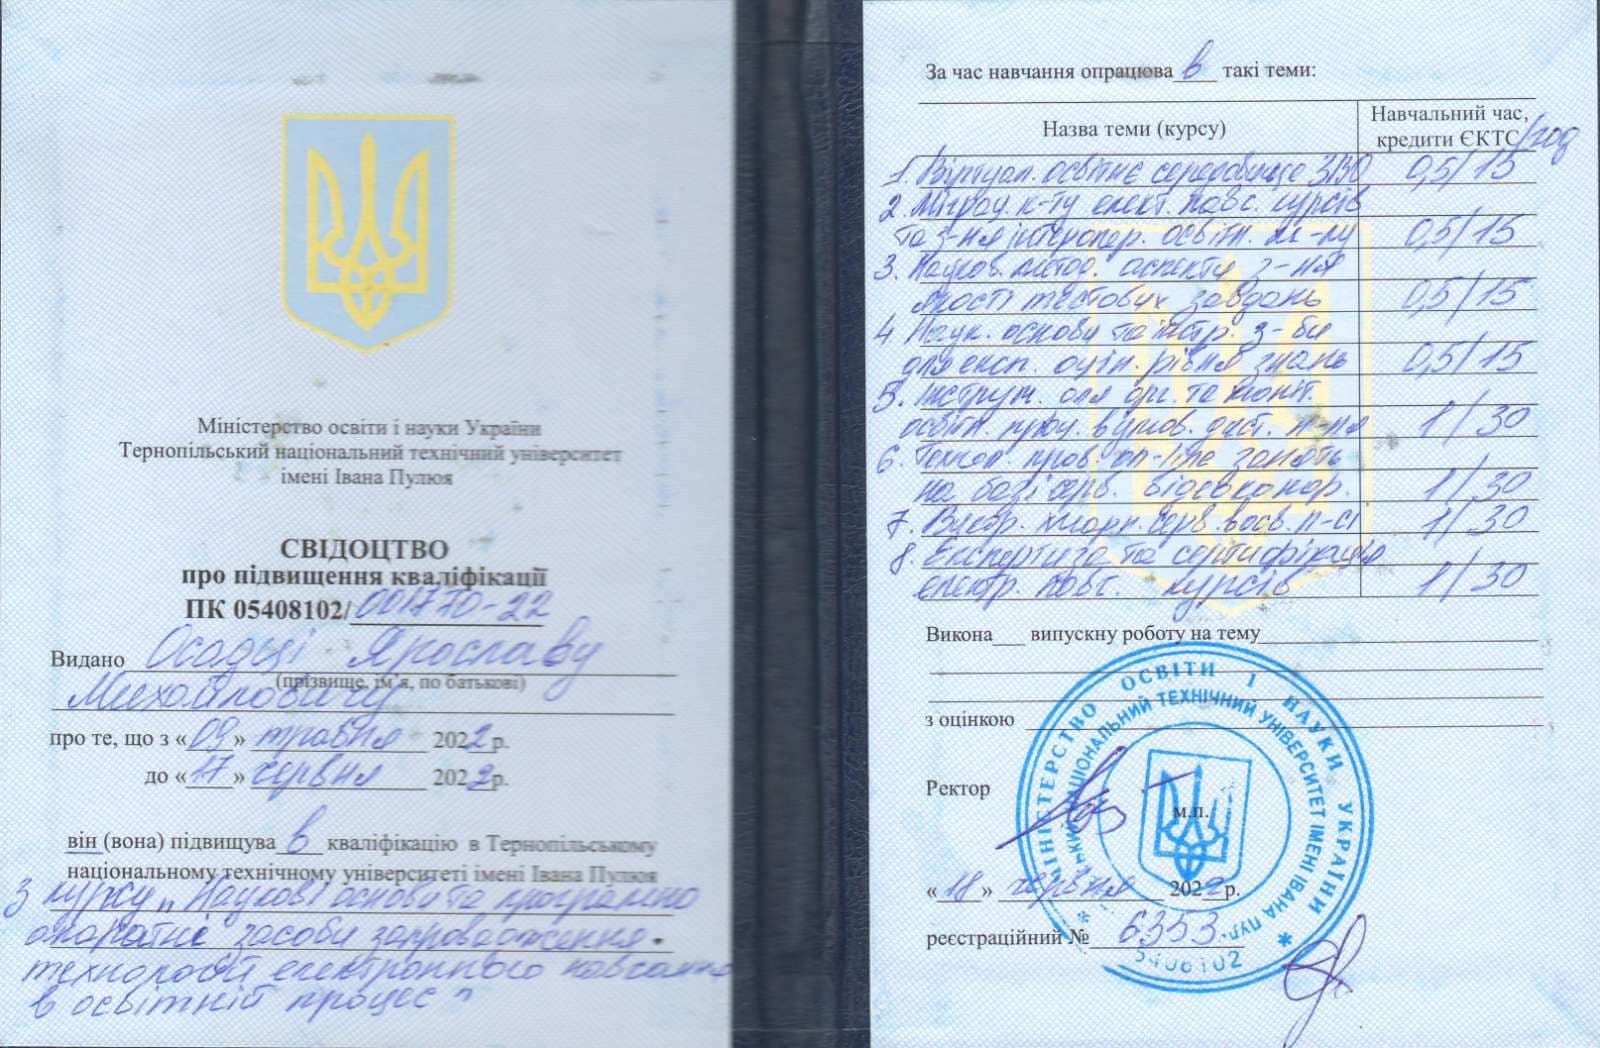 Міністерство освіти і науки України
Тернопільський національний технічний університет
імені Івана Пулюя
СВІДОЦТВО
про підвищення кваліфікації
ПК 05408102/001770-22
Видано Осадці Ярославу
(прізвище, ім'я, по батькові)
Михайловичу
про те, що з «09» травня 2022 р.
до «17» червня 2022 р.
він (вона) підвищува в кваліфікацію в Тернопільському
національному технічному університеті імені Івана Пулюя
З курсу „Наукові основи та програмно
апаратні засоби запровадження
технологій електронного навчання
в освітній процес"
За час навчання опрацюва в такі теми:
Назва теми (курсу)
Навчальний час,
кредити ЄКТС/год
1. Віртуал. освітнє середовище ЗВО 0,5/15
2. Міграц. к-ту елект. навч. курсів
та з-ня інтеропер. освітн. 0,5/15
3. Науков. метод. аспекти з-ня
якості тестових завдань 0,5/15
4. Наук. основи та інстр. з-би
для експ. оцін. рівня знань 0,5/15
5. Інструм. для орг. та моніт.
освітн. проц. в умов. дист. н-ня 1/30
6. Технол. пров. on-line занять
на базі серв. відеоконфер. 1/30
7. Викор. хмарн. серв. в осв. п-сі 1/30
8. Експертиза та сертифікація
електр. навч. курсів 1/30
Викона випускну роботу на тему
з оцінкою
Ректор
м.п.
«18» червня 2022 р.
реєстраційний № 6353
МІНІСТЕРСТВО ОСВІТИ І НАУКИ УКРАЇНИ
НАЦІОНАЛЬНИЙ ТЕХНІЧНИЙ УНІВЕРСИТЕТ ІМЕНІ ІВАНА
5408102